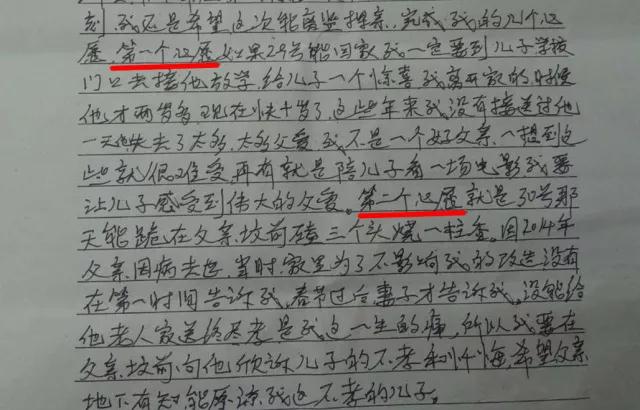 刻我还是希望这次能离监探亲,完成我的几个心
愿。第一个心愿如果29号能回家我一定要到儿子学校
门口去接他放学,给儿子一个惊喜我离开家的时候
他才两岁多现在快十岁了,这些年来我没有接送过他
一天他失去了太多,太多父爱,我不是一个好父亲,一想到这
些就很难受,再有就是陪儿子看一场电影我要
让儿子感受到伟大的父爱。第二个心愿就是30号那
天能跪在父亲坟前磕三个头烧一柱香。因2014年
父亲因病去世,当时家里为了不影响我的改造没有
在第一时间告诉我,春节过后妻子才告诉我,没能给
他老人家送终尽孝是我这一生的痛,所以我要在
父亲坟前向他倾诉儿子的不孝和忏悔,希望父亲
地下有知能原谅我这不孝的儿子。